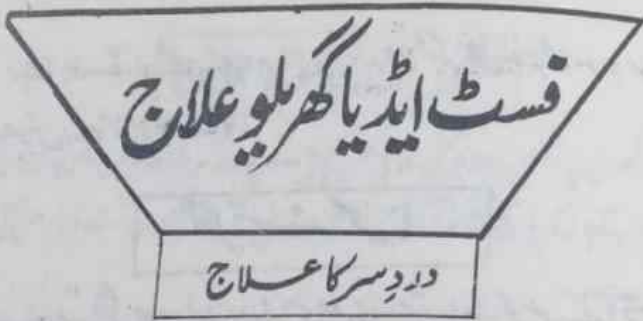 فسٹ ایڈ یا گھریلو علاج
دردِ سر کا علاج